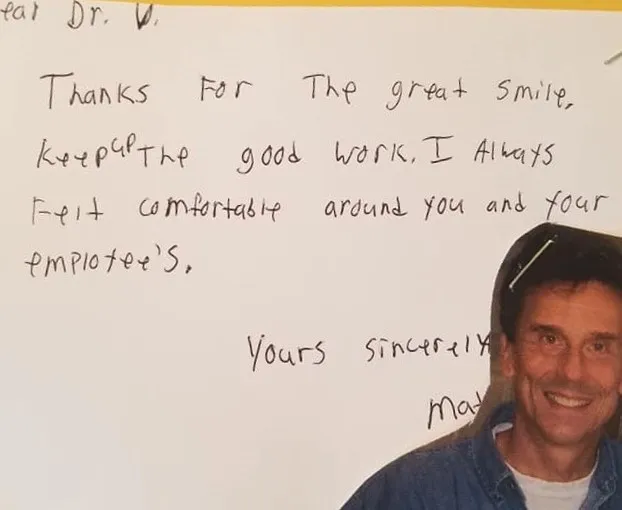 ear Dr. V.
Thanks For The great smile.
Keep up The good work. I Always
Felt comfortable around you and your
employee's.
Yours sincerely
Mat